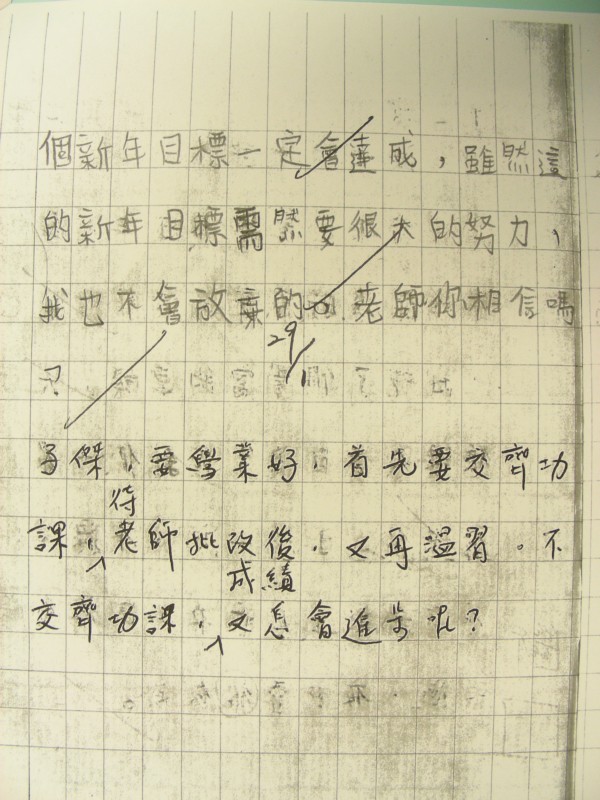 個新年目標一定會達成，雖然這
的新年目標需然要很大的努力，
我也不會放棄的。老師你相信嗎
？
29/1
子傑，要學業好，首先要交齊功
課，待老師批改後，又再溫習。不
交齊功課，成績又怎會進步呢？